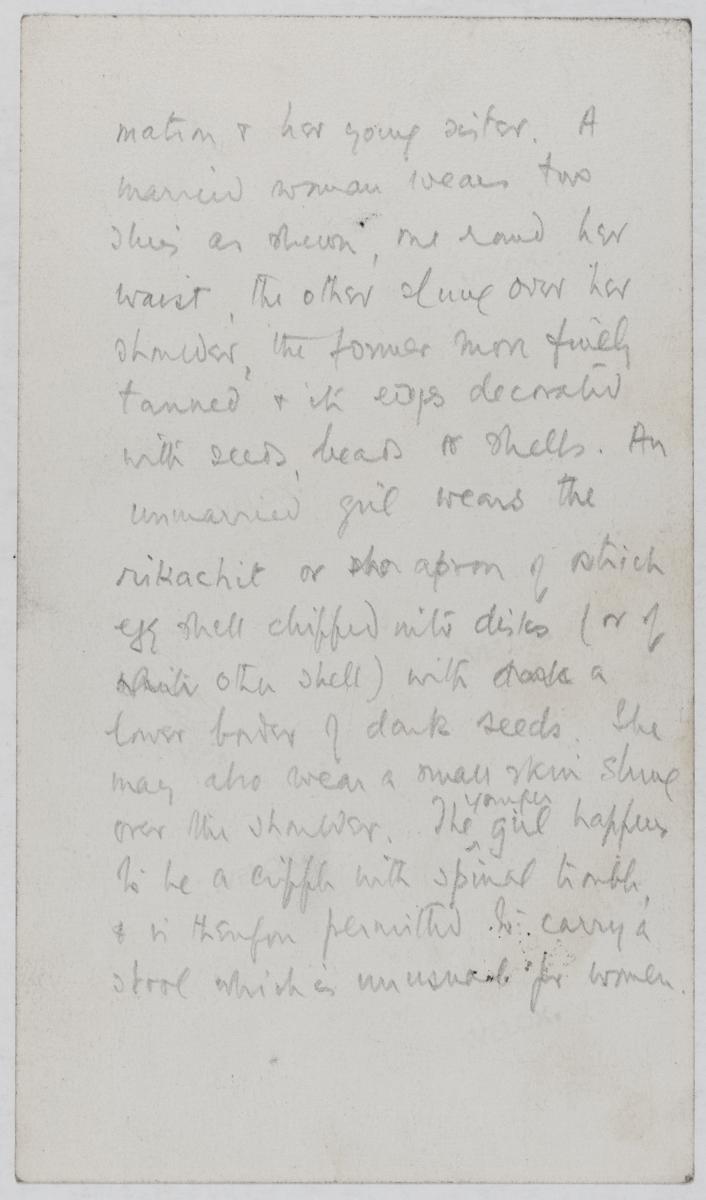 matron & her young sister. A
married woman wears two
skins as shewn, one round her
waist, the other slung over her
shoulder, the former more finely
tanned & its edges decorated
with seeds, beads or shells. An
unmarried girl wears the
rikachit or apron of ostrich
egg shell chipped into disks (or of
white other shell) with a
lower border of dark seeds. She
may also wear a small skin slung
over the shoulder. The younger girl happens
to be a cripple with spinal trouble,
& is therefore permitted to carry a
stool which is unusual for women.